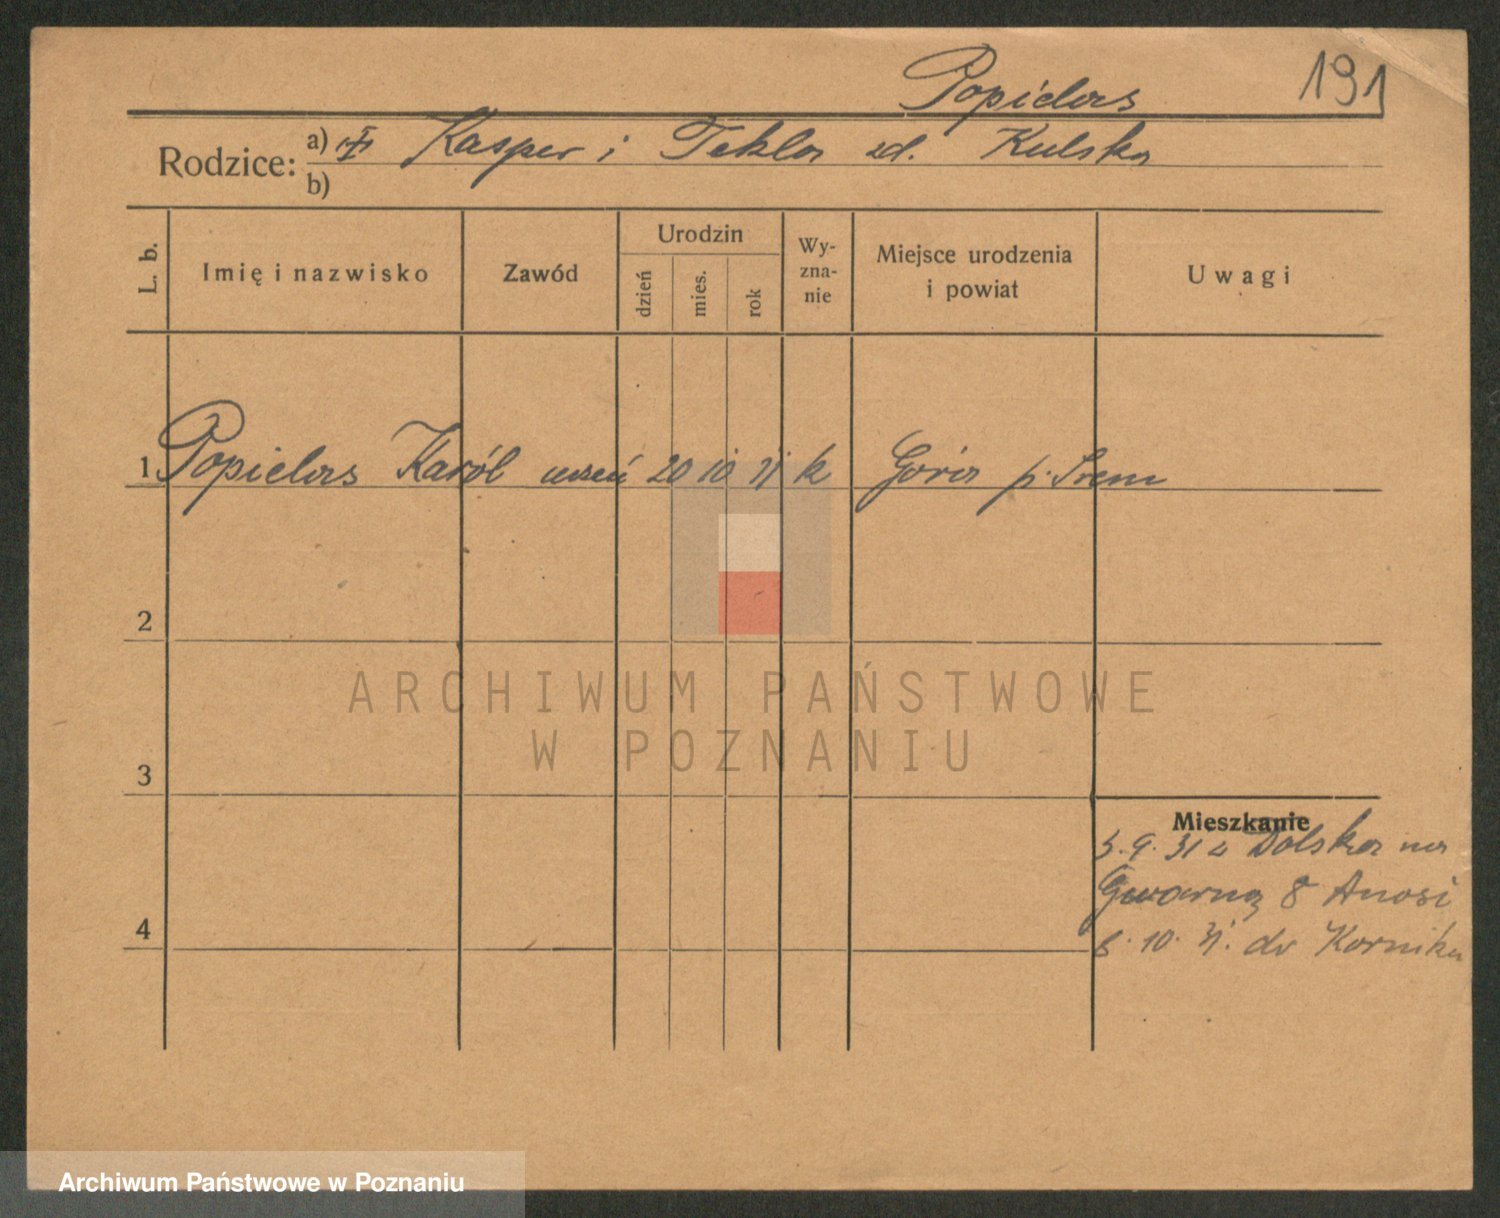 Popielas 191
Rodzice: a) Kasper i Tekla zd. Kulska
b)
L. b. Imię i nazwisko Zawód Urodzin dzień mies. rok Wyznanie Miejsce urodzenia i powiat Uwagi
1 Popielas Karól uczeń 20 10 k Góra p. Śrem
2
ARCHIWUM PAŃSTWOWE
W POZNANIU
3
Mieszkanie
5.9.31 z Dolska na
Gwarną 8
4
8.10.31. do Kornika
Archiwum Państwowe w Poznaniu